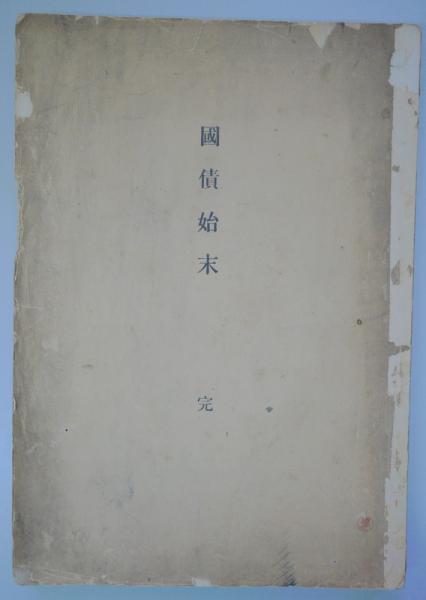 國債始末
完